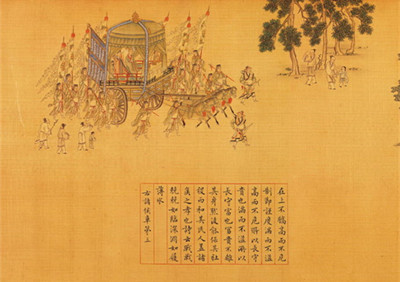 在上不驕高而不危
制節謹度滿而不溢
高而不危所以長守
貴也滿而不溢所以
長守富也富貴不離
其身然後能保其社
稷而和其民人蓋諸
侯之孝也詩云戰戰
兢兢如臨深淵如履
薄冰
右諸侯章第三